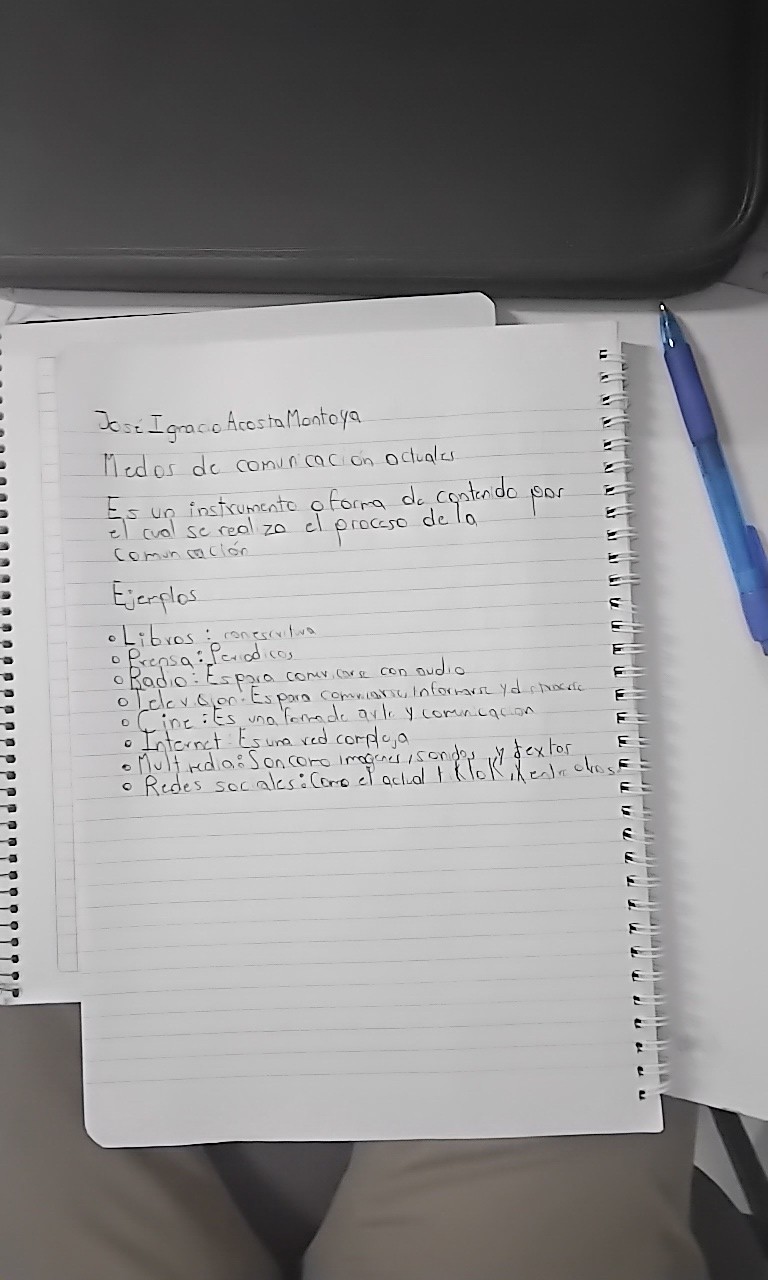 José Ignacio Acosta Montoya
Medios de comunicacion actuales
Es un instrumento o forma de contenido por
el cual se realiza el proceso de la
comunicación
Ejemplos
Libros: con escritura
Prensa: Periodicos
Radio: Es para comunicarse con audio
Television: Es para comunicarse, informarse y
Cine: Es una forma de arte y comunicacion
Internet: Es una red compleja
Multimedia: Son como imagenes, sonidos y textos
Redes sociales: Como el actual tiktok, X entre otros